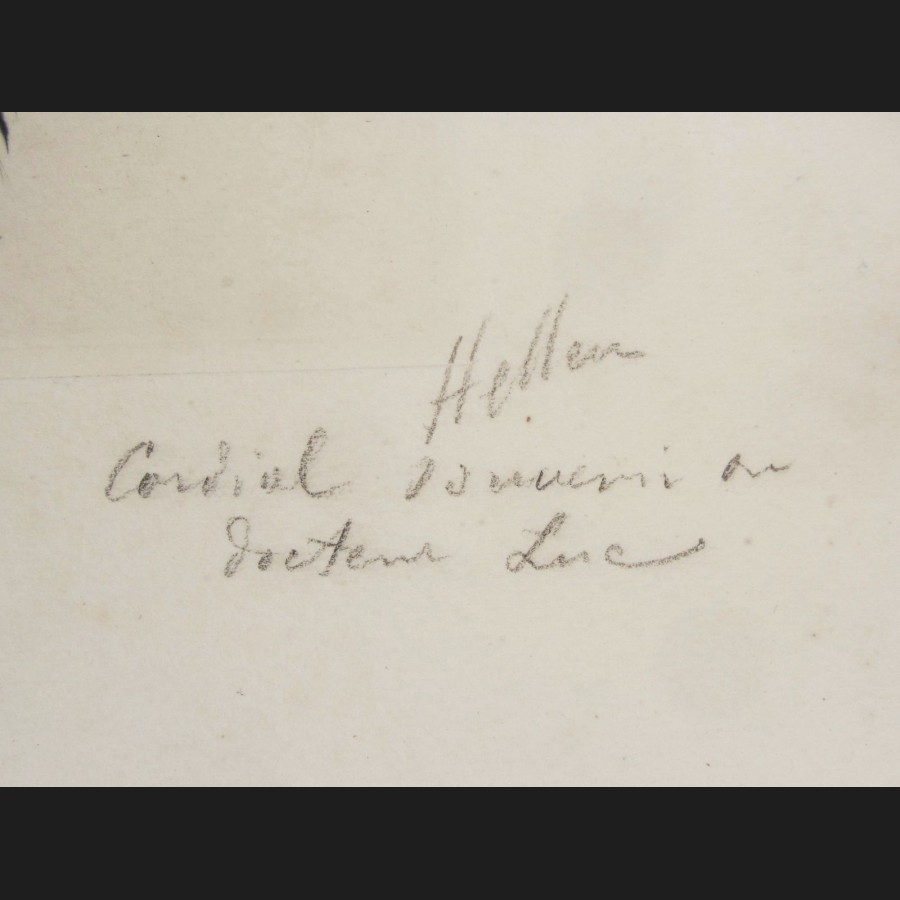 Helleu
Cordial souvenir au
docteur Luc